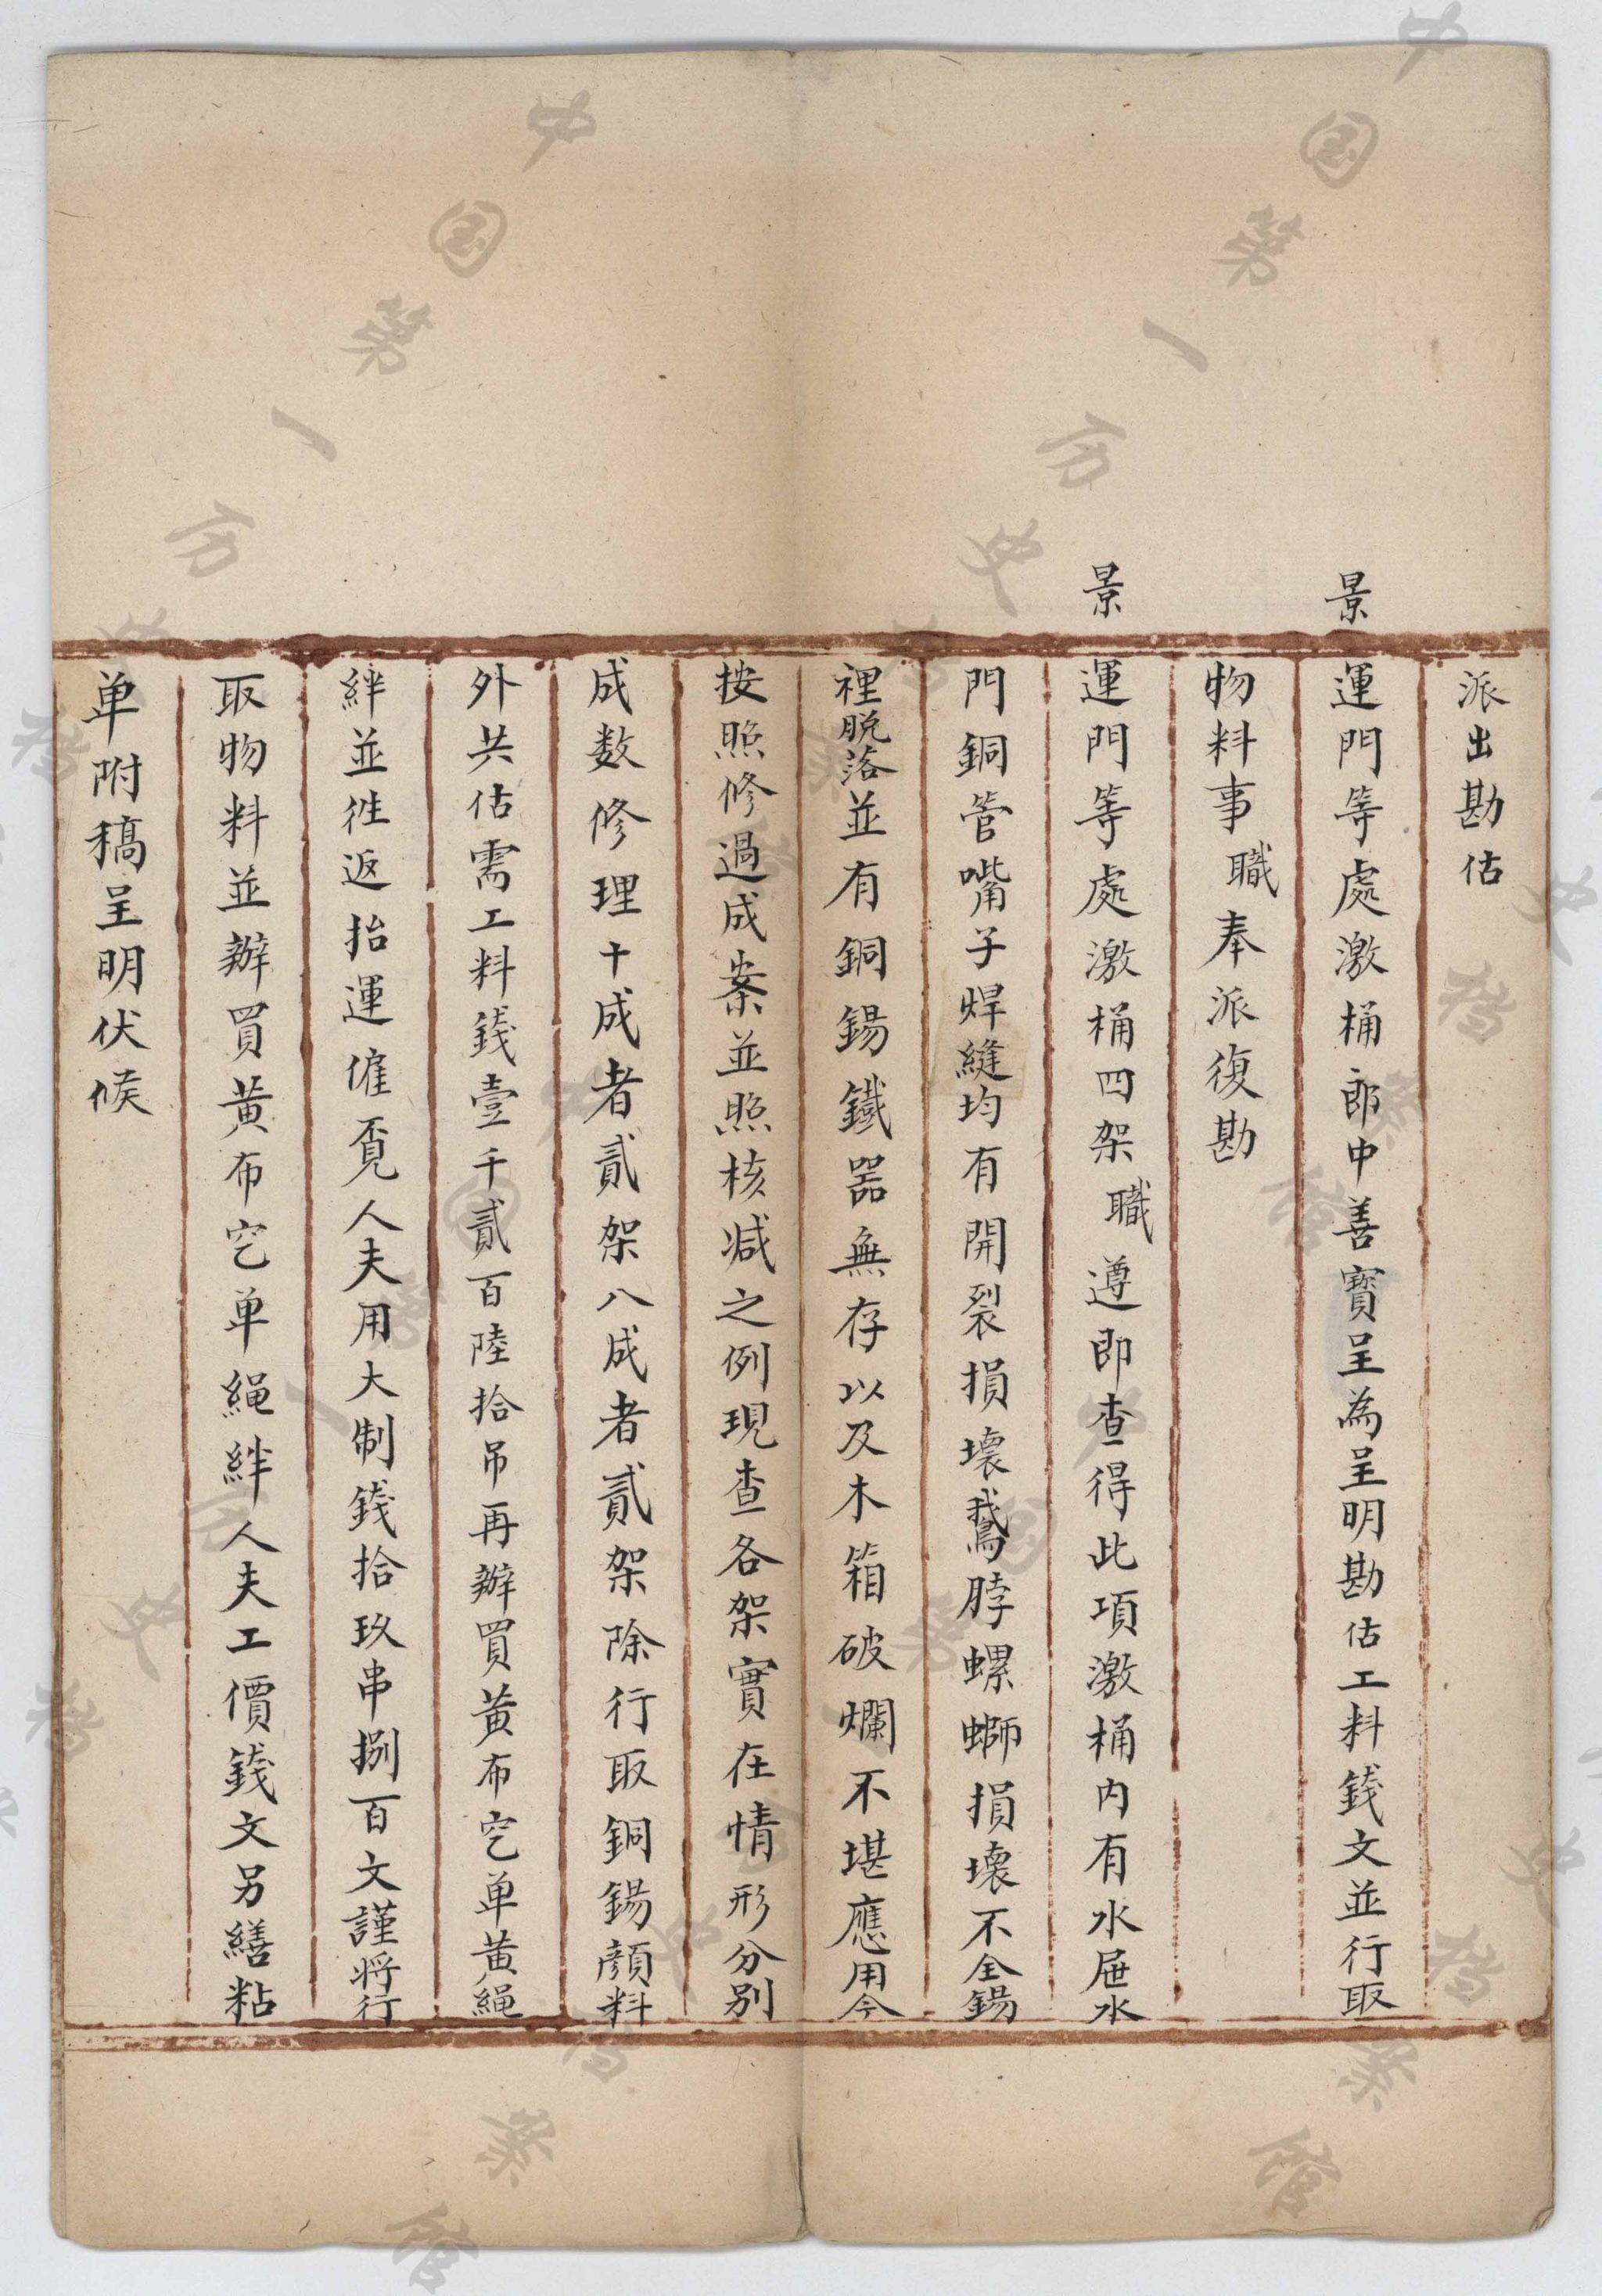 派出勘估
景運門等處激桶郎中善寶呈為呈明勘估工料錢文並行取
物料事職奉派復勘
景運門等處激桶四架職遵即查得此項激桶内有水屉水
門銅管嘴子焊縫均有開裂損壞鵞脖螺螄損壞不全錫
裡脱落並有銅錫鐵器無存以及木箱破爛不堪應用今
按照修過成案並照核减之例現查各架實在情形分别
成数修理十成者貳架八成者貳架除行取銅錫顔料
外共估需工料錢壹千貳百陸拾吊再辦買黄布空单黄繩
絆並徃返抬運僱覔人夫用大制錢拾玖串捌百文謹将行
取物料並辦買黄布空单繩絆人夫工價錢文另繕粘
单附稿呈明伏候